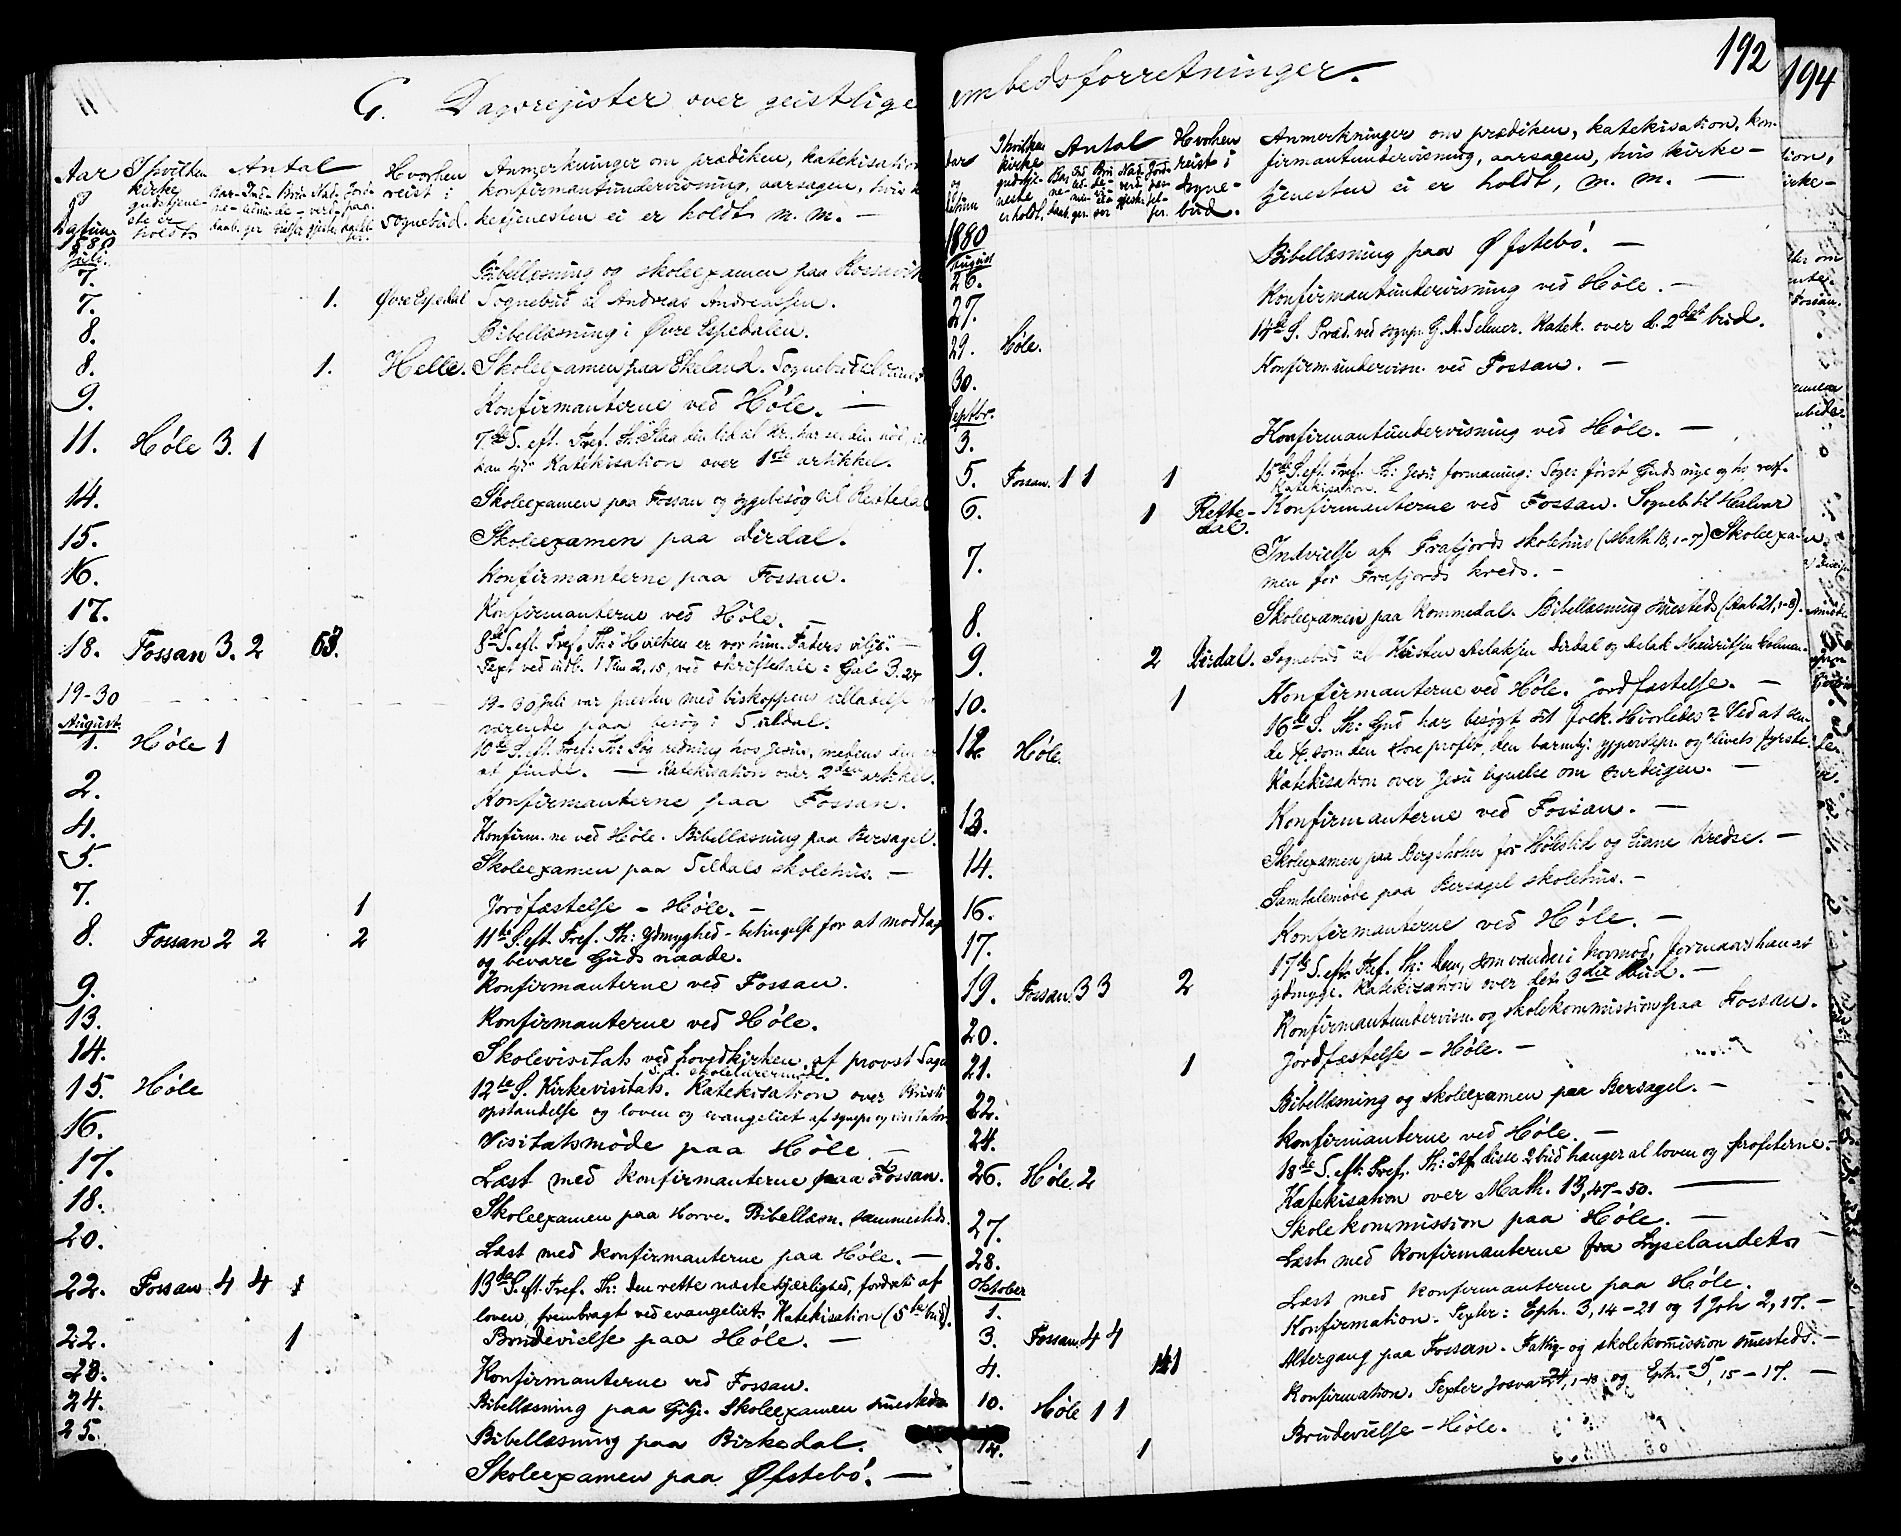 G. Dagsregister over geistlige
Aar og Datum
I hvilken kirke gudstjeneste er holdt
Antal
Hvorhen reist i sognebud.
Anmerkninger om prædiken, katekisation
konfirmantundervisning, aarsagen, hvis
kirketjenesten ei er holdt m. m. —
Juli.
7. Bibellæsning og skoleexamen paa
7. 1. Øvre Espedal Sognebud til Andreas Andreassen.
8. Bibellæsning i Øvre Espedalen.
8. 1. Helle. Skoleexamen paa Ekeland. Sognebud
9. Konfirmanterne ved Høle. —
11. Høle 3. 1 7de S. eft. Tref. Th:
Katekisation over 1ste artikkel.
14. Skoleexamen paa Fossan og sygebesøg til
15. Skoleexamen paa Dirdal.
16. Konfirmanterne paa Fossan.
17. Konfirmanterne ved Høle. —
18. Fossan 3. 2 8de S. eft. Tref. Th: Hvilken er vor him. Faders vilje. —
Text ved indl. 1 Tim 2, 15, ved skriftetale: Gal 3.
19-30 19-30 Juli var presten med biskoppens tilladelse
værende paa besøg i Suldal.
August.
1. Høle 1 10de S. eft. Tref. Th: Søg redning hos Jesus, medens
at finde. — Katekisation over 2den artikkel.
2. Konfirmanterne paa Fossan.
4. Konfirm.ne ved Høle. Bibellæsning paa Bersagel.
5. Skoleexamen paa Seldals skolehus. —
7. 1 Jordfæstelse – Høle. —
8. Fossan 2 2 2 11te S. eft. Tref. Th: Ydmyghed – betingelse for at modtage
og bevare Guds naade.
9. Konfirmanterne ved Fossan.
13. Konfirmanterne ved Høle.
14. Skolevisitats ved hovedkirken af provst
skolelærermøde.
15. Høle 12te S. Kirkevisitats. Katekisation over Kristi
opstandelse og loven og evangeliet af
16. Visitatsmøde paa Høle —
17. Læst med konfirmanterne paa Fossan.
18. Skoleexamen paa Horve. Bibellæsn. sammesteds.
20. Læst med konfirmanterne paa Høle. —
22. Fossan 4 4 1 13de S. eft. Tref. Th: Den rette næstekjærlighed, fordret af
loven, frembragt ved evangeliet. Katekisation (5te bud).
22. 1 Brudevielse paa Høle. —
23. Konfirmanterne ved Fossan.
24. Bibellæsning paa Gilje. Skoleexamen smesteds
25. Bibellæsning paa Birkedal.
Skoleexamen paa Øfstebø. —
embedsforretninger.
192
194
Aar og Datum
I hvilken kirke gudstjeneste er holdt.
Antal
Hvorhen reist i sognebud.
Anmerkninger om prædiken, katekisation, kon-
firmantundervisning, aarsagen, hvis kirke-
tjenesten ei er holdt, m. m. —
1880
August
26. Bibellæsning paa Øfstebø. —
27. Konfirmantundervisning ved Høle. —
29. Høle. 14de S. Præd. ved sogepr. G. A. Selmer. Katek. over d. 2det bud.
30. Konfirm.undervisn. ved Fossan. —
Septbr.
3. Konfirmantundervisning ved Høle. —
5. Fossan. 1 1 1 15de S. eft. Tref. Th: Jesu formaning: Søger først Guds rige og hs retf.
Katekisation. —
6. 1 Rette-
dal. Konfirmanterne ved Fossan. Sogneb. til Halvar
7. Indvielse af Frafjords skolehus (Math 18, 1-7) Skoleexa-
men for Frafjords kreds. —
8. Skoleexamen paa Kommedal. Bibellæsning smesteds (Aab 21, 1-8).
9. 2 Dirdal. Sognebud til Kirsten Aslaksen Dirdal og Aslak Mauritsen
10. 1 Konfirmanterne ved Høle. Jordfæstelse. —
12. Høle. 16de S. Th: Gud har besøgt sit folk. Hvorledes? Ved at sen-
de som den store profet, den barmhj. yppersepr. og livets fyrste.
Katekisation over Jesu lignelse om surdeigen. —
13. Konfirmanterne ved Fossan. —
14. Skoleexamen paa Bergeholm for Hølelid og Liane kredse. —
Samtalemøde paa Bersagel skolehus. —
16. Konfirmanterne ved Høle. —
17. 17de S. eft. Tref. Th: Den, som vandrer i hovmod, formaar han at
19. Fossan. 3 3 2 ydmyge. Katekisation over det 3die Bud. —
20. Konfirmantundervisn. og skolekommission paa Fossan.
21. 1 Jordfæstelse – Høle. —
22. Bibellæsning og skoleexamen paa Bersagel. —
24. Konfirmanterne ved Høle. —
26. Høle. 2 18de S. eft. Tref. Th: Af disse 2 bud hænger al loven og profeterne. —
Katekisation over Math. 13, 47-50. —
27. Skolekommission paa Høle. —
28. Læst med konfirmanterne fra Lyselandet
Oktober
1. Læst med konfirmanterne paa Høle.
3. Fossan 4 4 Konfirmation. Texter: Eph. 3, 14-21 og 1 Joh 2, 17. —
4. Altergang paa Fossan. Fattig- og skolekomission smesteds. —
10. Høle 1 1 Konfirmation. Texter Josva 24, og Eph. 5, 15-17. —
14. 1 Brudevielse – Høle.